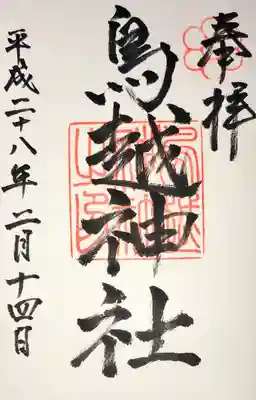 奉拝
鳥越神社
平成二十八年二月十四日